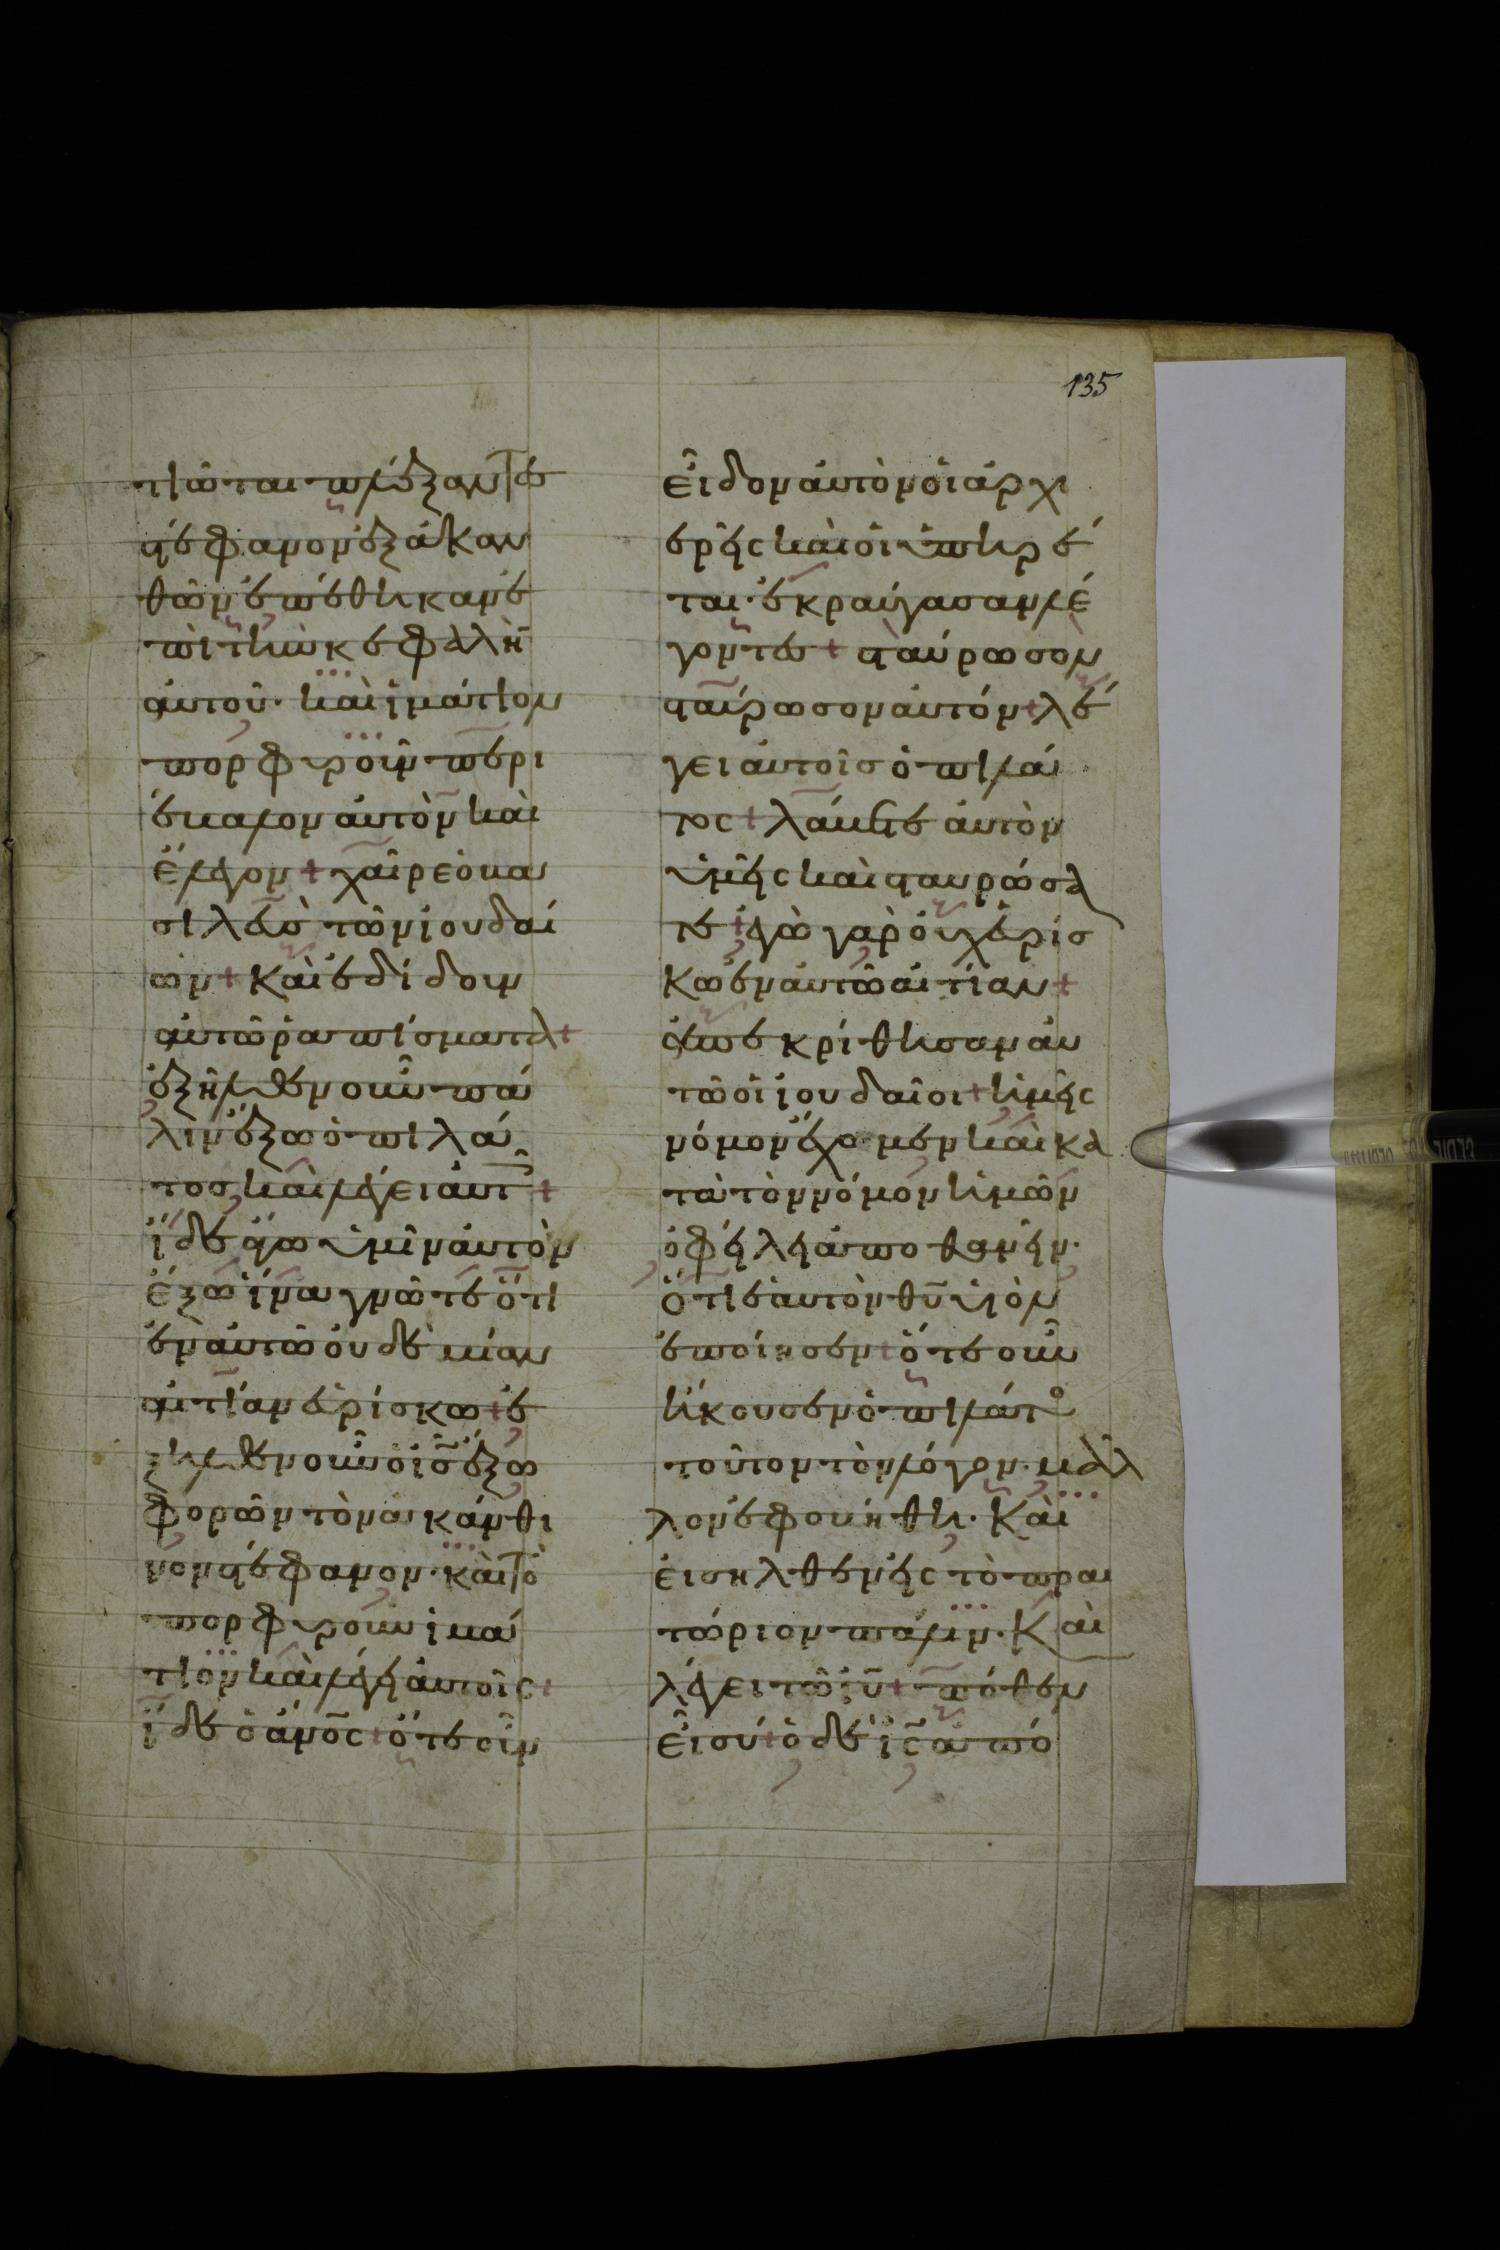 135
τιῶται πλέξαντ(ες)
στέφανον ἐξ ἀκαν
θῶν ἐπέθηκαν ἐ
πὶ τὴν κεφαλὴ
αὐτοῦ· καὶ ἱμάτιον
πορφυροῦν περι
έβαλον αὐτὸν καὶ
ἔλεγον + χαῖρε ὁ βα
σιλεὺς τῶν ἰουδαί
ων + Καὶ ἐδίδουν
αὐτῶ ῥαπίσματα +
ἐξῆλθεν οὖν πά
λιν ἔξω ὁ πιλά
τοσ καὶ λέγει αὐτ +
ἴδε ἄγω ὑμῖν αὐτὸν
ἔξω ἵνα γνῶτε ὅτι
ἐν αὐτῶ οὐδεμίαν
αἰτίαν εὑρίσκω + ἐ
ξῆλθεν οὖν ὁ ις ἔξω
φορῶν τὸν ἀκάνθι
νον στέφανον· καὶ τὸ
πορφυροῦν ἱμά
τιον καὶ λέγει αὐτοῖς +
ἴδε ὁ ἀνος + ὅτε οὖν
εἶδον αὐτὸν οἱ ἀρχι
ερεῖς καὶ οἱ ὑπηρέ
ται· ἐκραύγασαν λέ
γοντες + σταύρωσον
σταύρωσον αὐτόν + λέ
γει αὐτοῖσ ὁ πιλά
τος + λάβετε αὐτὸν
ὑμεῖς καὶ σταυρώσα
τε + ἐγὼ γὰρ οὐχ εὑρίσ
κω ἐν αὐτῶ αἰτίαν +
ἀπεκρίθησαν αὐ
τῶ οἱ ἰουδαῖοι + ἡμεῖς
νόμον ἔχομεν καὶ κα
τὰ τὸν νόμον ἡμῶν
ὀφείλει ἀποθανεῖν·
ὅτι ἑαυτὸν θυ υἱὸν
ἐποίησεν + ὅτε οὖν
ἤκουσεν ὁ πιλάτο
τοῦτον τὸν λόγον· μᾶλ
λον ἐφοβήθη· Καὶ
εἰσηλθεν εἰς τὸ πραι
τώριον πάλιν· Καὶ
λέγει τῶ ιυ + πόθεν
εἶ σύ + ὁ δὲ ις ἀπό